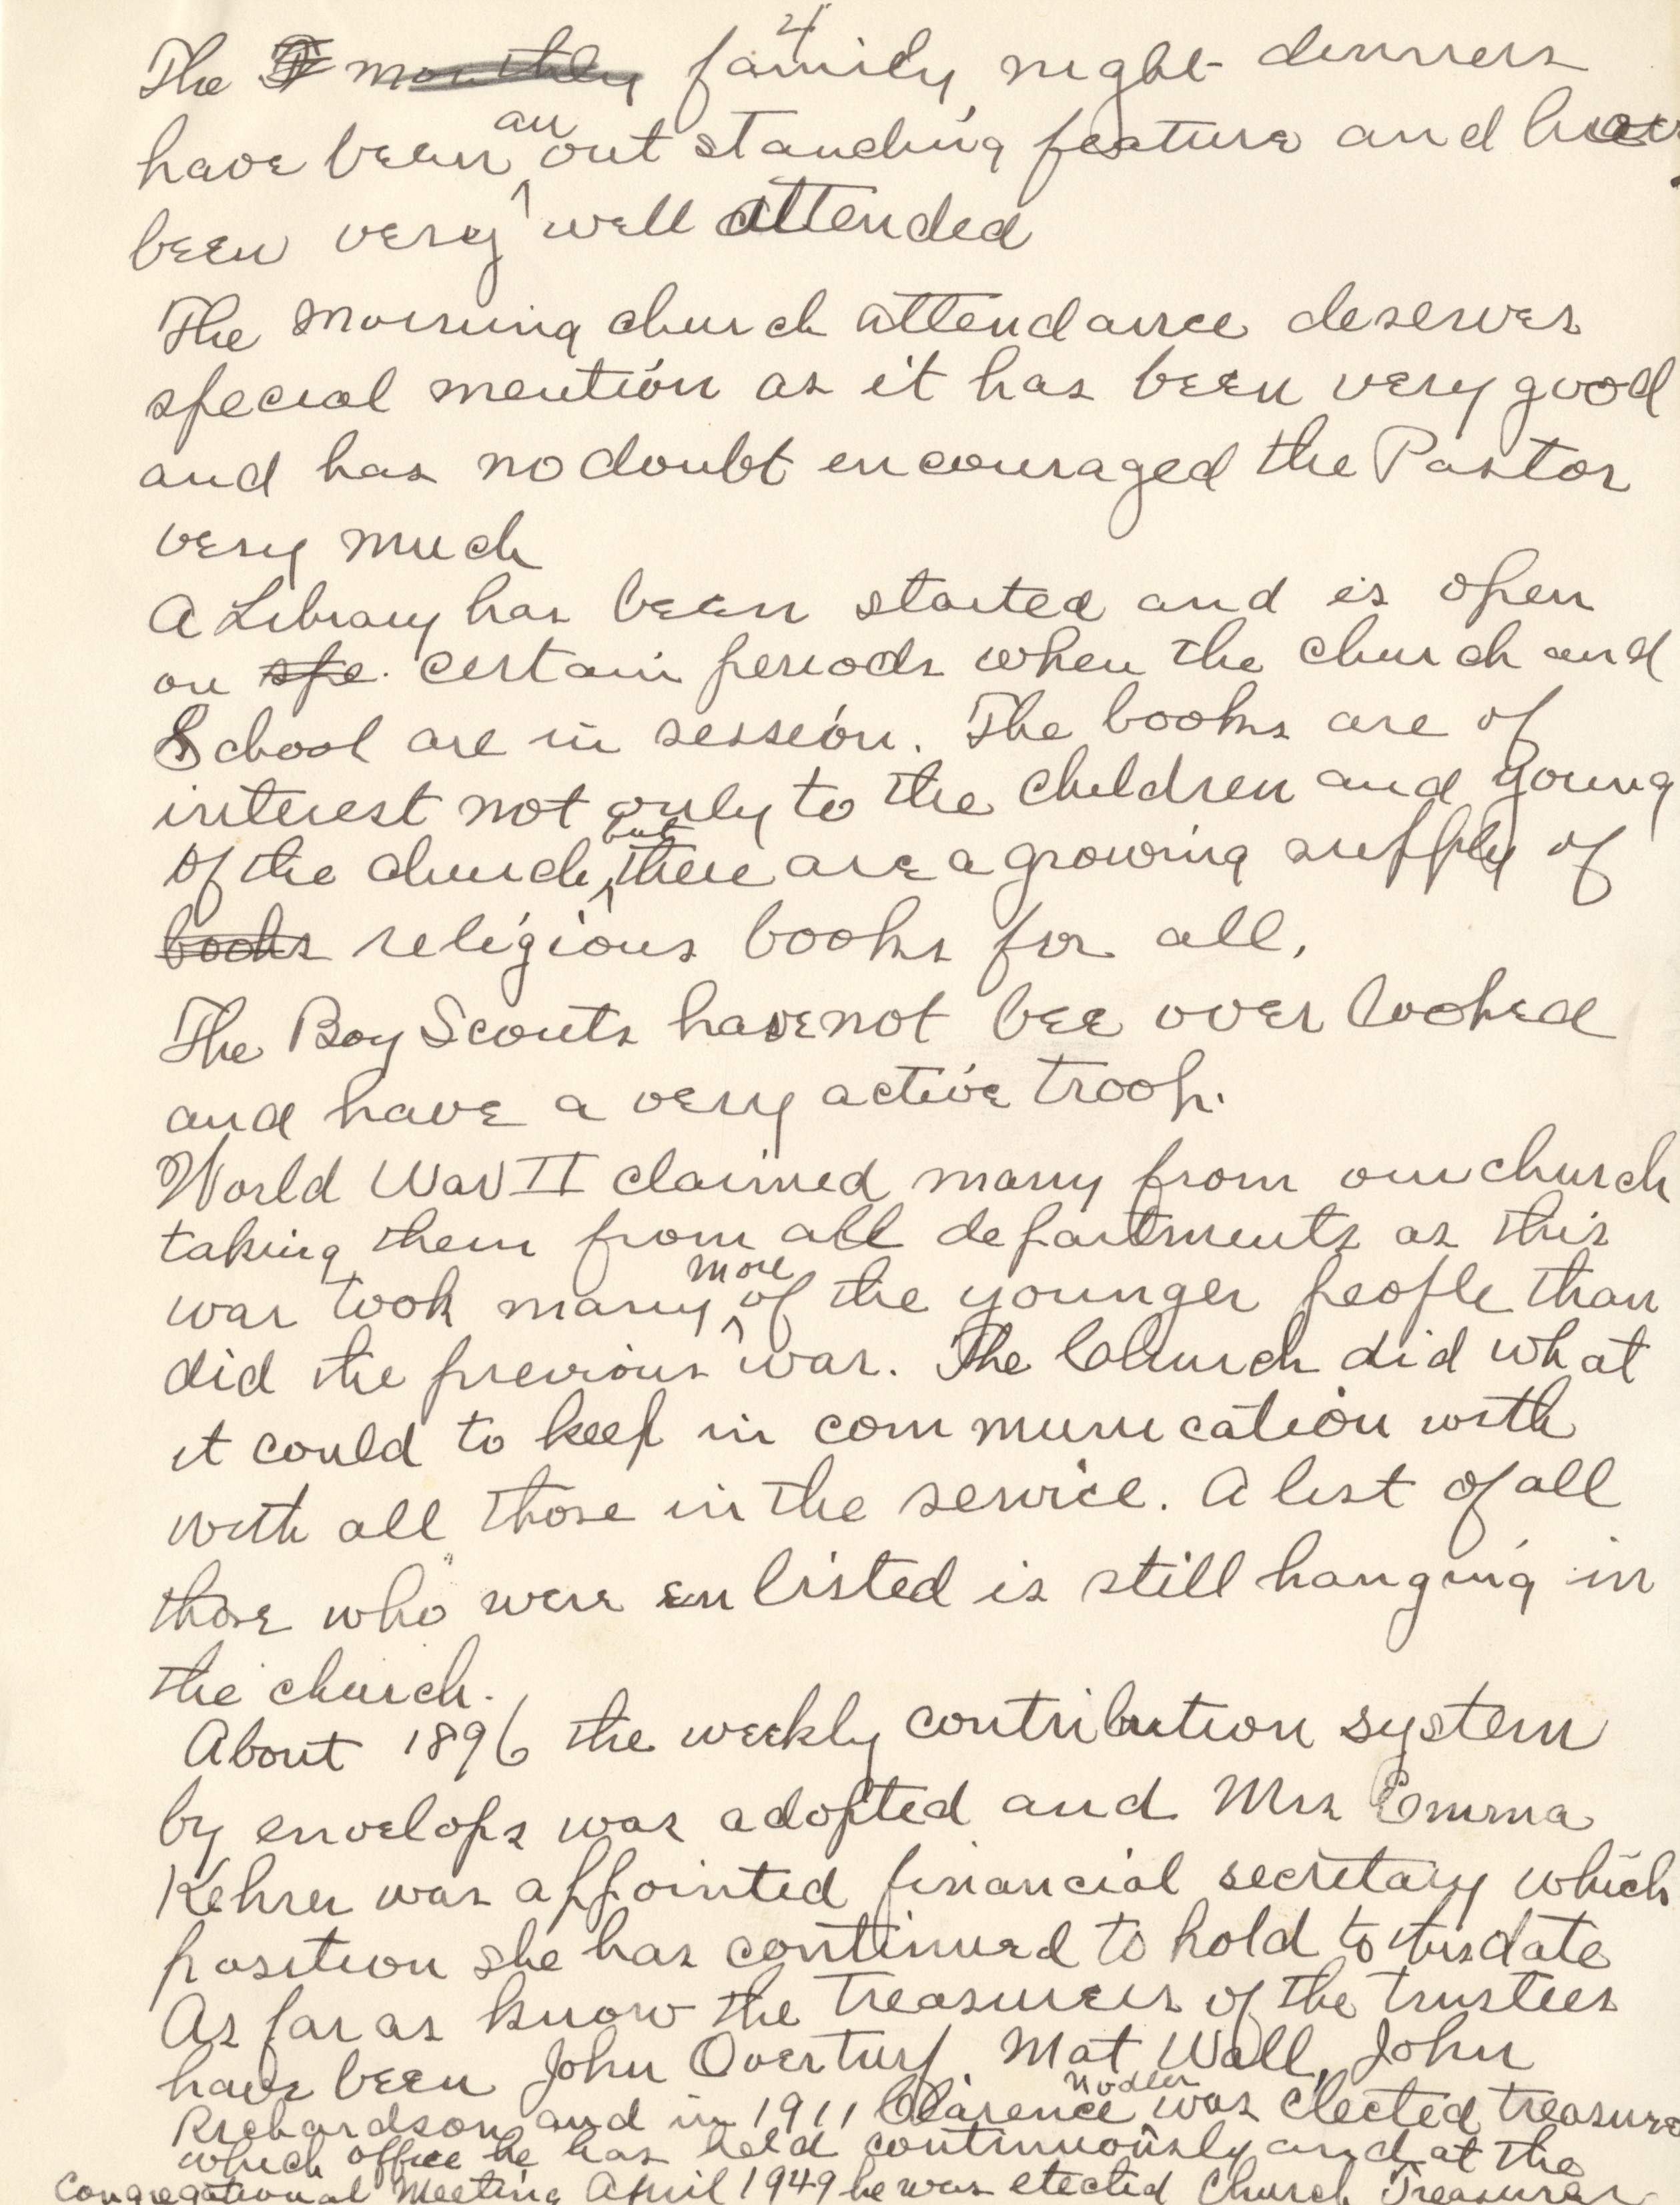 4
The F monthly family night dinners
have been an out standing feature and have
been very well attended
The morning church attendance deserves
special mention as it has been very good
and has no doubt encouraged the Pastor
very much
A Library has been started and is open
on spe. certain periods when the church and
School are in session. The books are of
interest not only to the children and young
of the church, but there are a growing supply of
books religious books for all.
The Boy Scouts have not bee over looked
and have a very active troop.
World War II claimed many from our church
taking them from all departments as this
war took many more of the younger people than
did the previous war. The Church did what
it could to keep in communication with
with all those in the service. A list of all
those who were enlisted is still hanging in
the church.
About 1896 the weekly contribution system
by envelops was adopted and Mrs Emma
Kehrer was appointed financial secretary which
position she has continued to hold to this date
As far as know the treasurers of the trustees
have been John Overturf, Mat Wall, John
Richardson and in 1911 Clarence Nodler was elected treasurer
which office he has held continuously and at the
Congregational Meeting April 1949 he was elected Church Treasurer